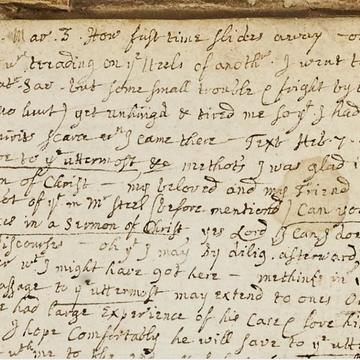 Mar. 3. How fast time slides away -
treading on yᵉ Heels of anothʳ. I went t
but some small trouble & fright by t
hurt) yet unhing'd & tired me so yᵗ I had
scarce wⁿ I came there - Text Heb. 7.
to yᵉ uttermost &c methots I was glad
of Christ - my beloved and my Friend
of yᵐ in Mʳ Steel (before mentiond) Can yo
in a Sermon of Christ yes Lord I Can I do
discourse - oh yᵗ I may by dilig. afterward
wᵗ I might have got here - methinks in
passage to yᵉ uttermost may extend to ones
had large Experience of his Case & love
I hope Comfortably he will save to yᵉ utt
me to the